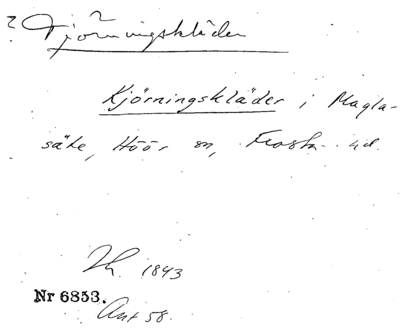 ? Tjörningskläder ?
Kjörningskläder i Magla-
säte, Höör sn, Frosta hd.
Th. 1843
Nr 6853.
Ant 58.